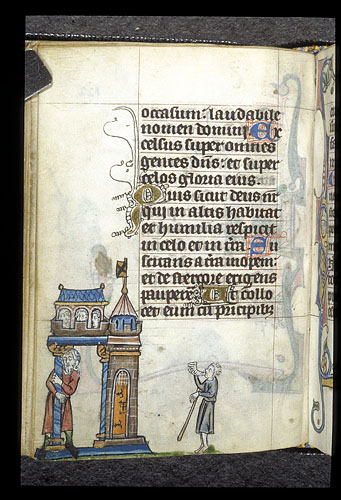 occasum: laudabile
nomen domini. Ex
celsus super omnes
gentes dn̄s: et super
celos gloria eius.
Quis sicut deus nr̄
qui in altis habitat
et humilia respicit
in celo et in t̄ra Su
scitans a t̄ra inopem:
et de stercore erigens
pauperē. Et collo
cet eum cū principib;